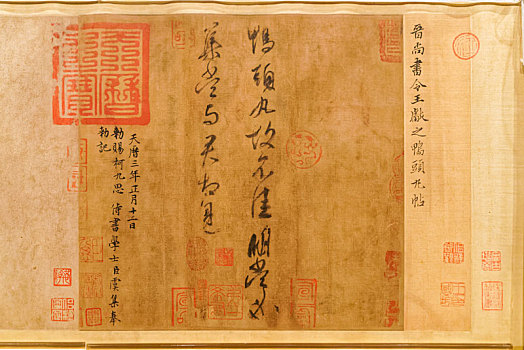 晉尚書令王獻之鴨頭丸帖
鴨頭丸故不佳明當必
集當與君相見
天曆三年正月十二日
勅賜柯九思 侍書學士臣虞集奉
勅記
天曆之寶